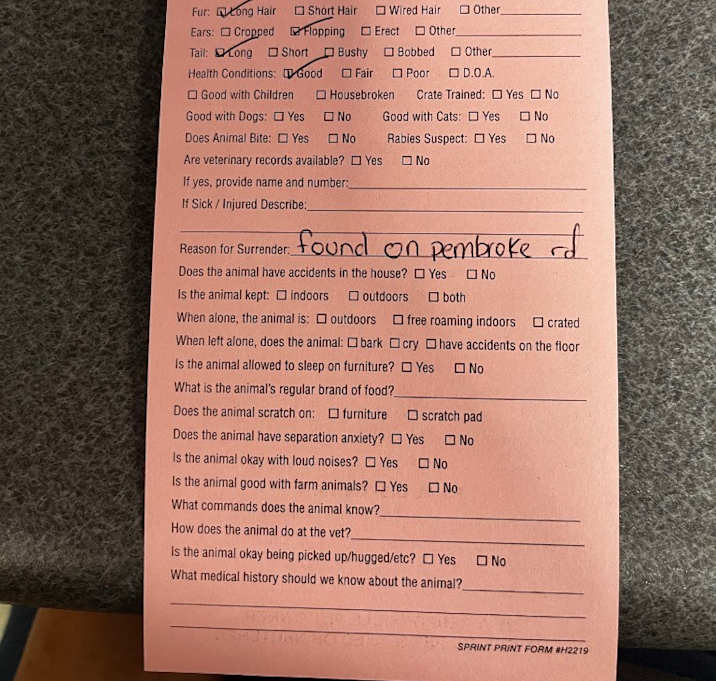 Fur: ☑ Long Hair ☐ Short Hair ☐ Wired Hair ☐ Other
Ears: ☐ Cropped ☑ Flopping ☐ Erect ☐ Other
Tail: ☑ Long ☐ Short ☐ Bushy ☐ Bobbed ☐ Other
Health Conditions: ☑ Good ☐ Fair ☐ Poor ☐ D.O.A.
☐ Good with Children ☐ Housebroken Crate Trained: ☐ Yes ☐ No
Good with Dogs: ☐ Yes ☐ No Good with Cats: ☐ Yes ☐ No
Does Animal Bite: ☐ Yes ☐ No Rabies Suspect: ☐ Yes ☐ No
Are veterinary records available? ☐ Yes ☐ No
If yes, provide name and number:
If Sick / Injured Describe:
Reason for Surrender: found on pembroke rd
Does the animal have accidents in the house? ☐ Yes ☐ No
Is the animal kept: ☐ indoors ☐ outdoors ☐ both
When alone, the animal is: ☐ outdoors ☐ free roaming indoors ☐ crated
When left alone, does the animal: ☐ bark ☐ cry ☐ have accidents on the floor
Is the animal allowed to sleep on furniture? ☐ Yes ☐ No
What is the animal's regular brand of food?
Does the animal scratch on: ☐ furniture ☐ scratch pad
Does the animal have separation anxiety? ☐ Yes ☐ No
Is the animal okay with loud noises? ☐ Yes ☐ No
Is the animal good with farm animals? ☐ Yes ☐ No
What commands does the animal know?
How does the animal do at the vet?
Is the animal okay being picked up/hugged/etc? ☐ Yes ☐ No
What medical history should we know about the animal?
SPRINT PRINT FORM #H2219